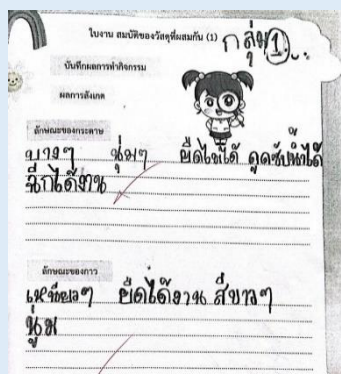 ใบงาน สมบัติของวัสดุที่ผสมกัน (1) กลุ่ม 1
บันทึกผลการทำกิจกรรม
ผลการสังเกต
ลักษณะของกระดาษ
บางๆ นุ่มๆ ยืดไม่ได้ ดูดซับน้ำได้
ฉีกได้งาน
ลักษณะของกาว
เหนียวๆ ยืดได้งาน สีขาวๆ
นุ่ม